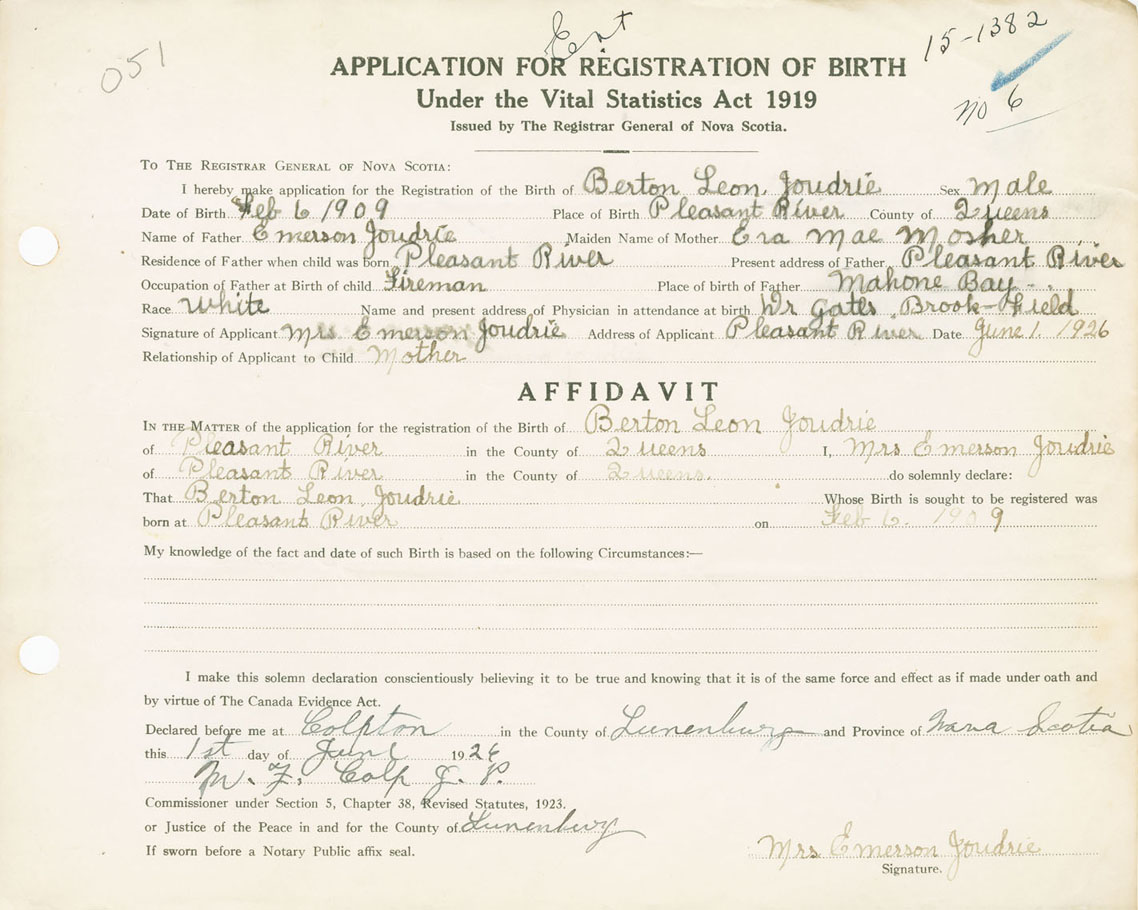 051
Ent
15-1382
No 6
APPLICATION FOR REGISTRATION OF BIRTH
Under the Vital Statistics Act 1919
Issued by The Registrar General of Nova Scotia.
TO THE REGISTRAR GENERAL OF NOVA SCOTIA:
I hereby make application for the Registration of the Birth of Berton Leon Joudrie Sex Male
Date of Birth Feb 6 1909 Place of Birth Pleasant River County of Queens
Name of Father Emerson Joudrie Maiden Name of Mother Era Mae Mosher
Residence of Father when child was born Pleasant River Present address of Father Pleasant River
Occupation of Father at Birth of child Fireman Place of birth of Father Mahone Bay
Race White Name and present address of Physician in attendance at birth Dr Gates, Brook-Field
Signature of Applicant Mrs Emerson Joudrie Address of Applicant Pleasant River Date June 1. 1926
Relationship of Applicant to Child Mother
AFFIDAVIT
IN THE MATTER of the application for the registration of the Birth of Berton Leon Joudrie
of Pleasant River in the County of Queens I, Mrs Emerson Joudrie
of Pleasant River in the County of Queens. do solemnly declare:
That Berton Leon Joudrie Whose Birth is sought to be registered was
born at Pleasant River on Feb 6. 1909
My knowledge of the fact and date of such Birth is based on the following Circumstances:—
I make this solemn declaration conscientiously believing it to be true and knowing that it is of the same force and effect as if made under oath and
by virtue of The Canada Evidence Act.
Declared before me at Colpton in the County of Lunenburg and Province of Nova Scotia
this 1st day of June 1926
M. F. Colp J. P.
Commissioner under Section 5, Chapter 38, Revised Statutes, 1923.
or Justice of the Peace in and for the County of Lunenburg
If sworn before a Notary Public affix seal.
Mrs Emerson Joudrie
Signature.